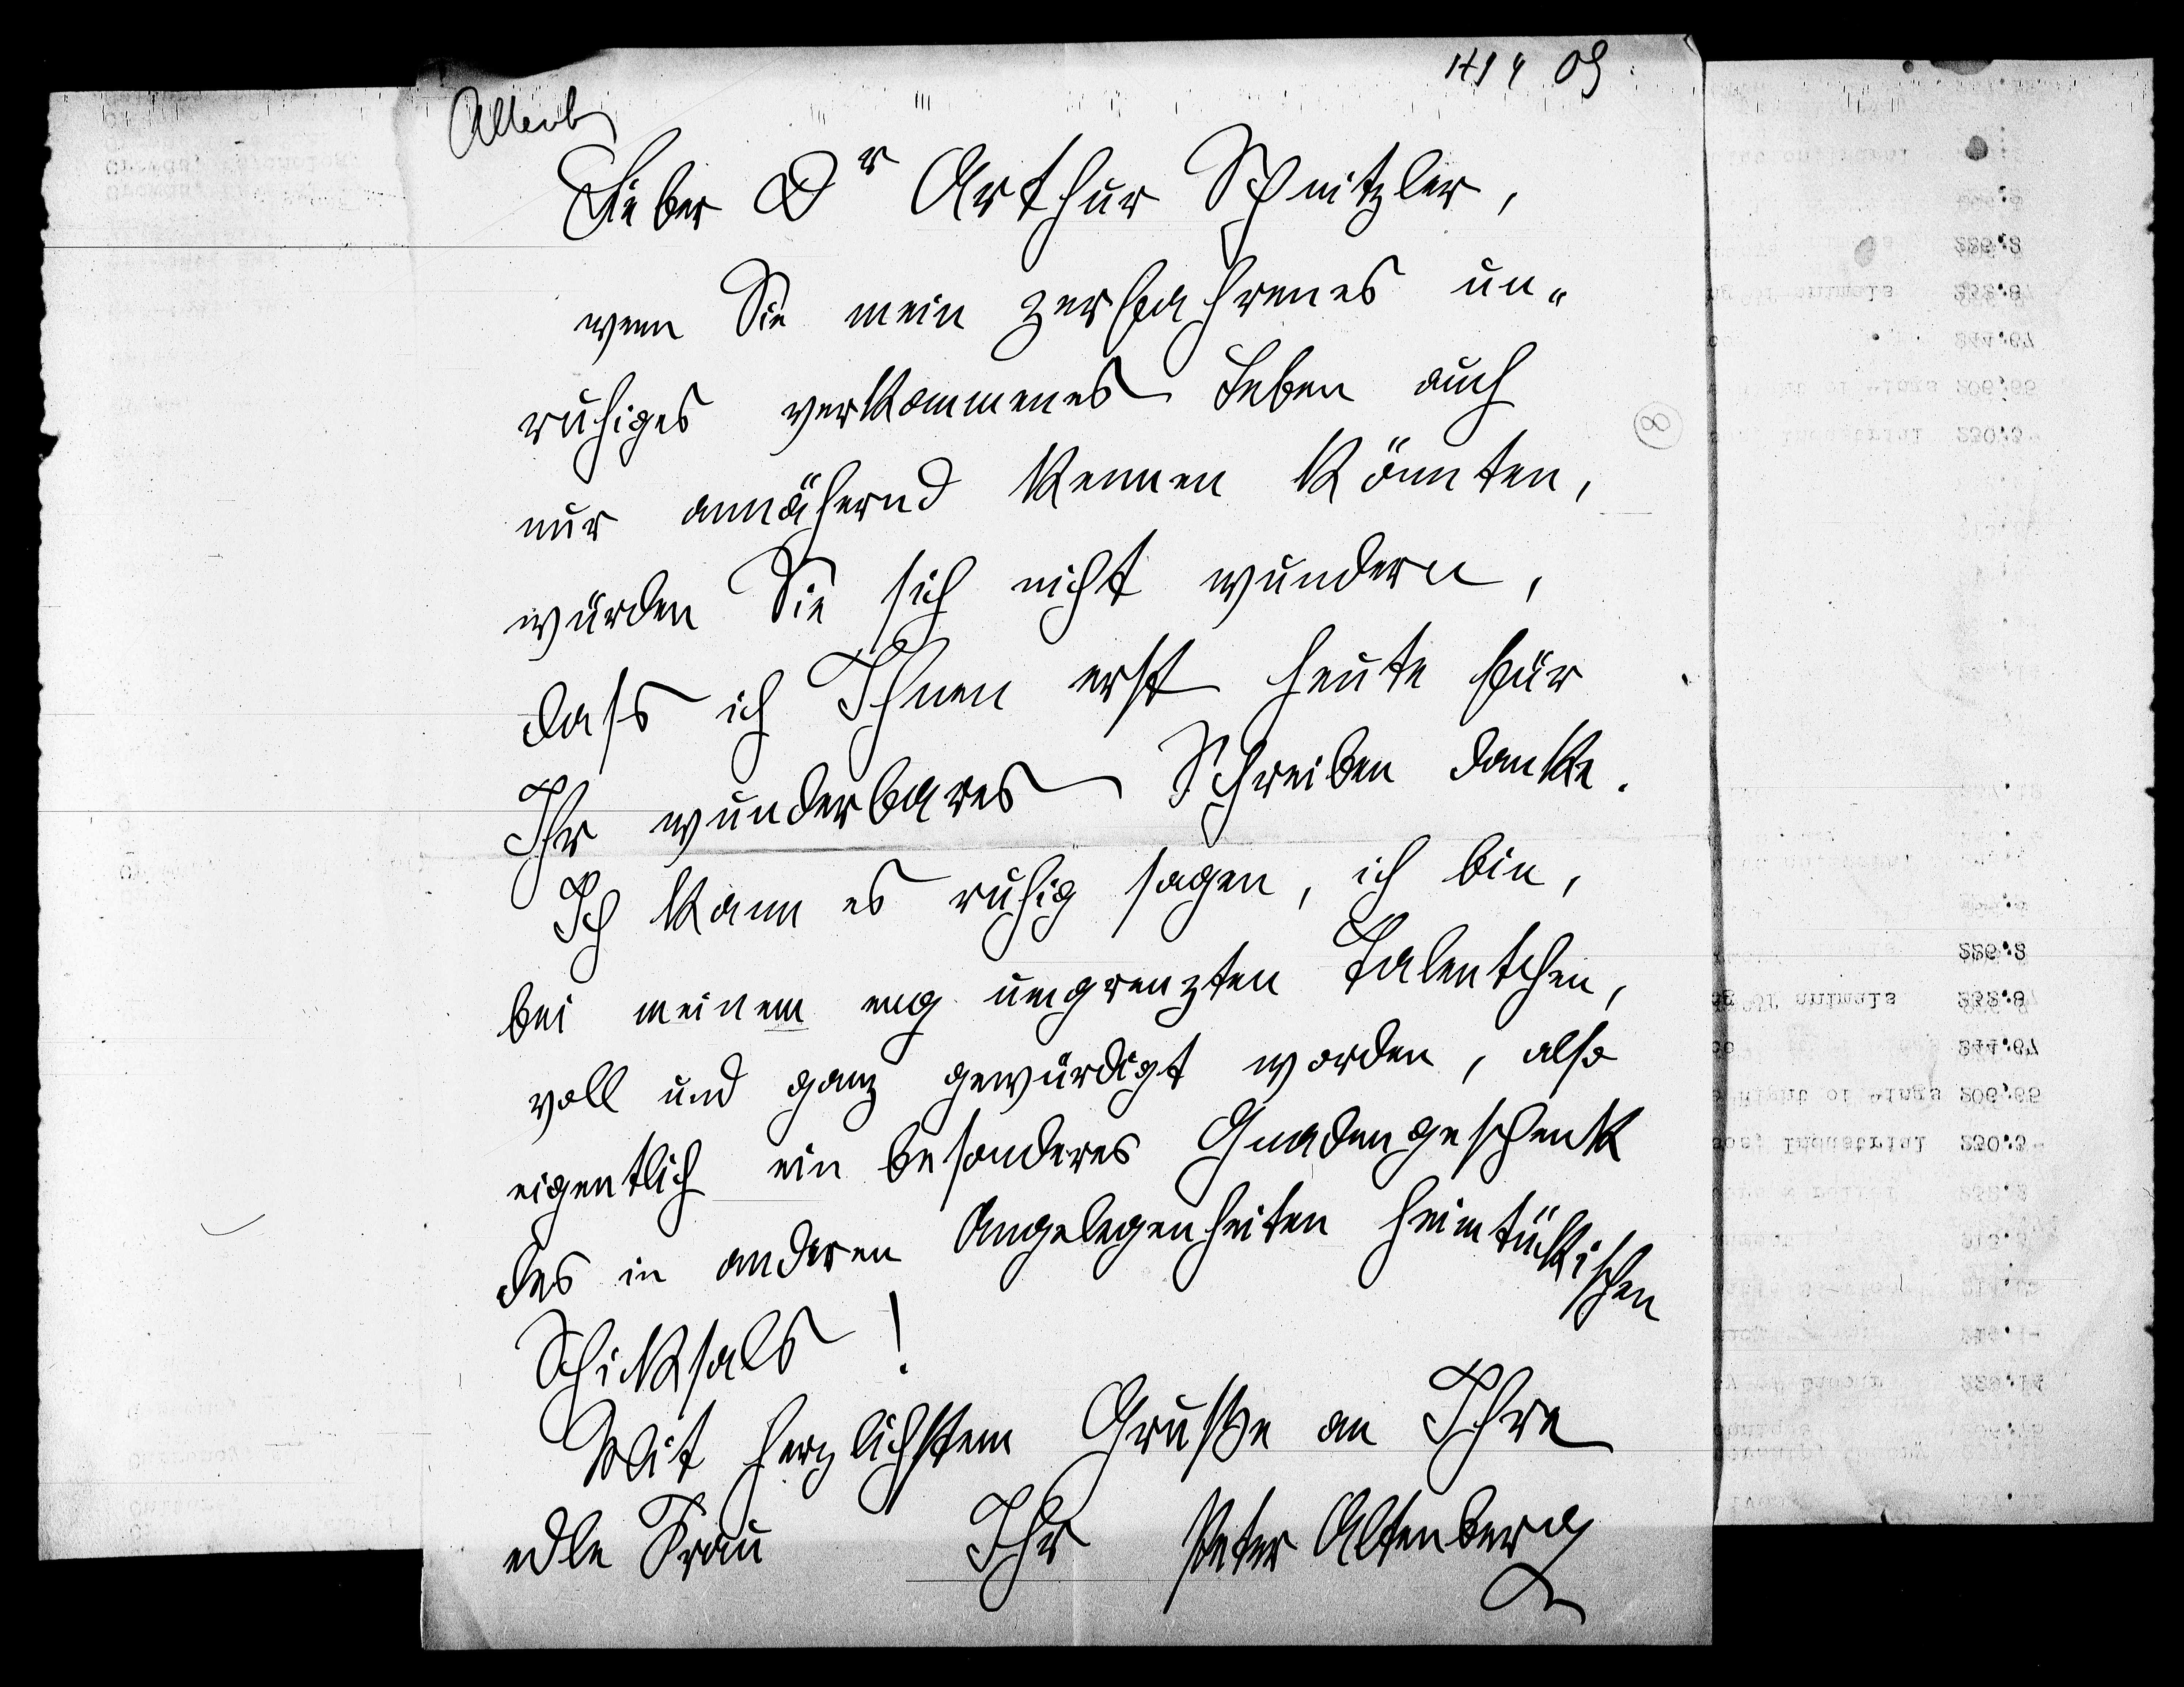 Altenb
09
Lieber Dr Arthur Schnitzler,
wenn Sie mein zerfahrenes un-
ruhiges verkommenes Leben auch
8
nur annähernd kennen könnten,
würden Sie sich nicht wundern,
dass ich Ihnen erst heute für
Ihr wunderbares Schreiben danke.
Ich kann es ruhig sagen, ich bin,
bei meinem eng umgrenzten Talentchen,
voll und ganz gewürdigt worden, also
eigentlich ein besonderes Gnadengeschenk
des in anderen Angelegenheiten heimtückischen
Schicksals!
Mit herzlichstem Gruße an Ihre
edle Frau Ihr Peter Altenberg